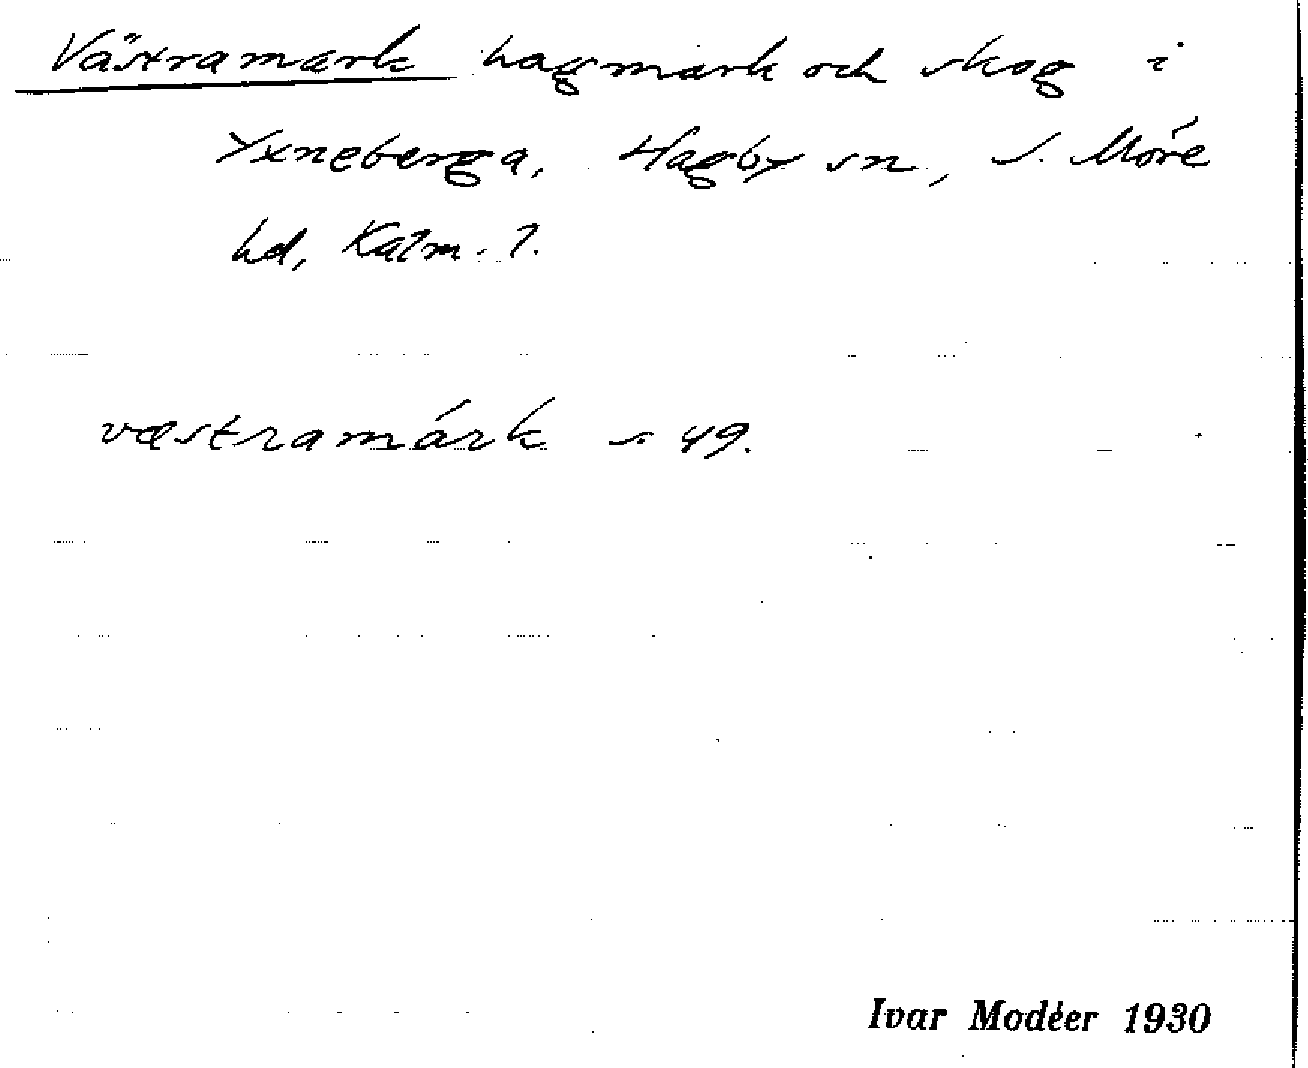 Västramark hagmark och skog i
Yxneberga, Hagby sn, S. Möre
hd, Kalm. l.
væstramárk s 49.
Ivar Modéer 1930